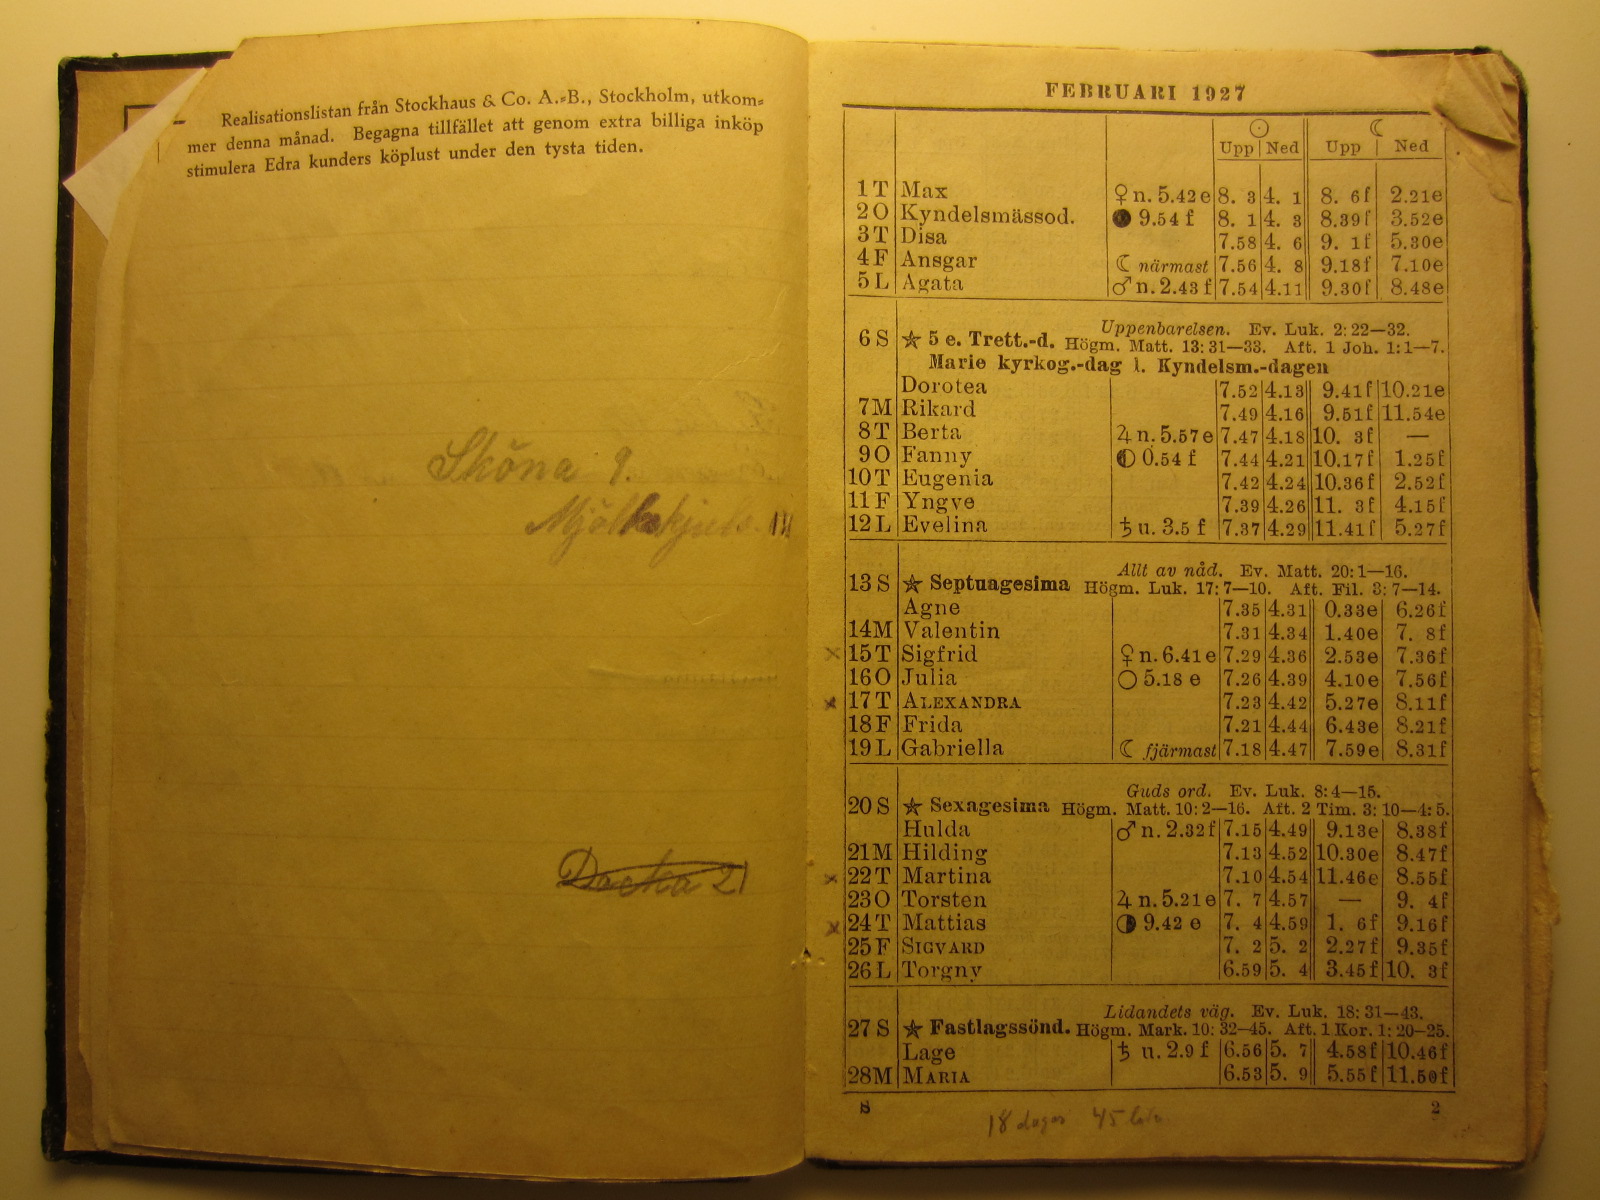 Realisationslistan från Stockhaus & Co. A.-B., Stockholm, utkom-
mer denna månad. Begagna tillfället att genom extra billiga inköp
stimulera Edra kunders köplust under den tysta tiden.
Sköna 9.
Mjölkskjuts. III
Docka 21
FEBRUARI 1927
☉ ☾
Upp Ned Upp Ned
1 T Max ♀ n. 5.42 e 8. 3 4. 1 8. 6 f 2.21 e
2 O Kyndelsmässod. ● 9.54 f 8. 1 4. 3 8.39 f 3.52 e
3 T Disa 7.58 4. 6 9. 1 f 5.30 e
4 F Ansgar ☾ närmast 7.56 4. 8 9.18 f 7.10 e
5 L Agata ♂ n. 2.43 f 7.54 4.11 9.30 f 8.48 e
Uppenbarelsen. Ev. Luk. 2: 22—32.
6 S ★ 5 e. Trett.-d. Högm. Matt. 13: 31—33. Aft. 1 Joh. 1: 1—7.
Marie kyrkog.-dag l. Kyndelsm.-dagen
Dorotea 7.52 4.13 9.41 f 10.21 e
7 M Rikard 7.49 4.16 9.51 f 11.54 e
8 T Berta ♃ n. 5.57 e 7.47 4.18 10. 3 f —
9 O Fanny ◐ 0.54 f 7.44 4.21 10.17 f 1.25 f
10 T Eugenia 7.42 4.24 10.36 f 2.52 f
11 F Yngve 7.39 4.26 11. 3 f 4.15 f
12 L Evelina ♄ u. 3.5 f 7.37 4.29 11.41 f 5.27 f
Allt av nåd. Ev. Matt. 20: 1—16.
13 S ★ Septuagesima Högm. Luk. 17: 7—10. Aft. Fil. 3: 7—14.
Agne 7.35 4.31 0.33 e 6.26 f
14 M Valentin 7.31 4.34 1.40 e 7. 8 f
x 15 T Sigfrid ♀ n. 6.41 e 7.29 4.36 2.53 e 7.36 f
16 O Julia ○ 5.18 e 7.26 4.39 4.10 e 7.56 f
x 17 T ALEXANDRA 7.23 4.42 5.27 e 8.11 f
18 F Frida 7.21 4.44 6.43 e 8.21 f
19 L Gabriella ☾ fjärmast 7.18 4.47 7.59 e 8.31 f
Guds ord. Ev. Luk. 8: 4—15.
20 S ★ Sexagesima Högm. Matt. 10: 2—16. Aft. 2 Tim. 3: 10—4: 5.
Hulda ♂ n. 2.32 f 7.15 4.49 9.13 e 8.38 f
21 M Hilding 7.13 4.52 10.30 e 8.47 f
x 22 T Martina 7.10 4.54 11.46 e 8.55 f
23 O Torsten ♃ n. 5.21 e 7. 7 4.57 — 9. 4 f
x 24 T Mattias ◑ 9.42 e 7. 4 4.59 1. 6 f 9.16 f
25 F SIGVARD 7. 2 5. 2 2.27 f 9.35 f
26 L Torgny 6.59 5. 4 3.45 f 10. 3 f
Lidandets väg. Ev. Luk. 18: 31—43.
27 S ★ Fastlagssönd. Högm. Mark. 10: 32—45. Aft. 1 Kor. 1: 20—25.
Lage ♄ u. 2.9 f 6.56 5. 7 4.58 f 10.46 f
28 M MARIA 6.53 5. 9 5.55 f 11.50 f
S 2
18 dagar 45